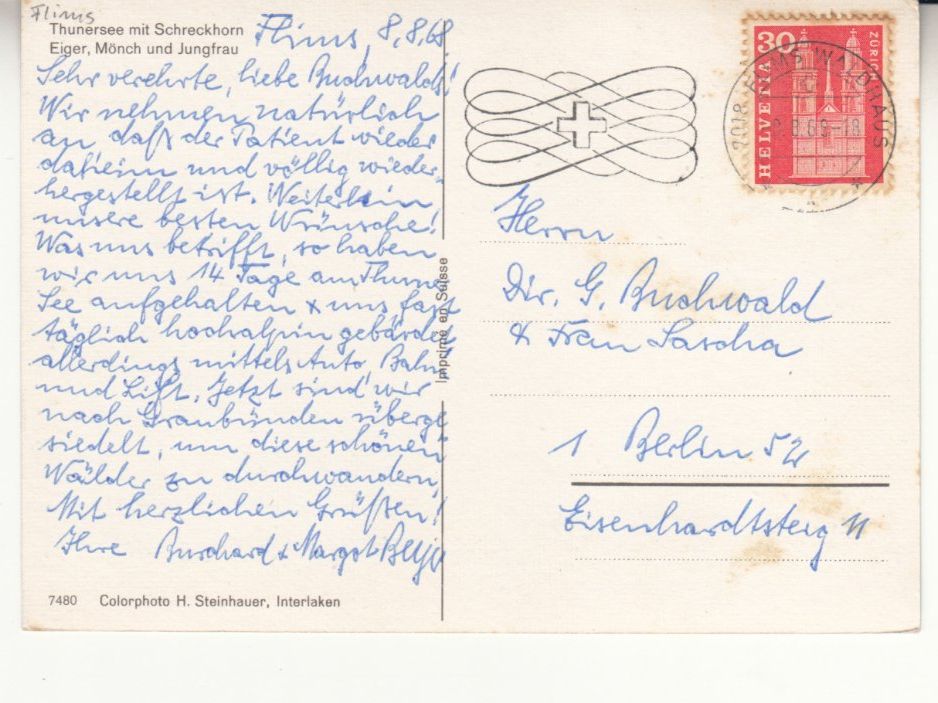 Flims
Thunersee mit Schreckhorn
Eiger, Mönch und Jungfrau
Flims, 8.8.68
Sehr verehrte, liebe Buchwalds!
Wir nehmen natürlich
an daß der Patient wieder
daheim und völlig wieder-
hergestellt ist. Weiterhin
unsere besten Wünsche!
Was uns betrifft, so haben
wir uns 14 Tage am Thuner
See aufgehalten & uns fast
täglich hochalpin gebärdet
allerdings mittels Auto, Bahn
und Lift. Jetzt sind wir
nach Graubünden überge
siedelt, um diese schönen
Wälder zu durchwandern,
Mit herzlichen Grüßen!
Ihre Burchard & Margot
7480 Colorphoto H. Steinhauer, Interlaken
Imprimé en Suisse
HELVETIA 30 ZÜRICH
FLIMS WALDHAUS
Herrn
Dir. G. Buchwald
& Frau Sascha
1 Berlin 52
Eisenhardtsteig 11